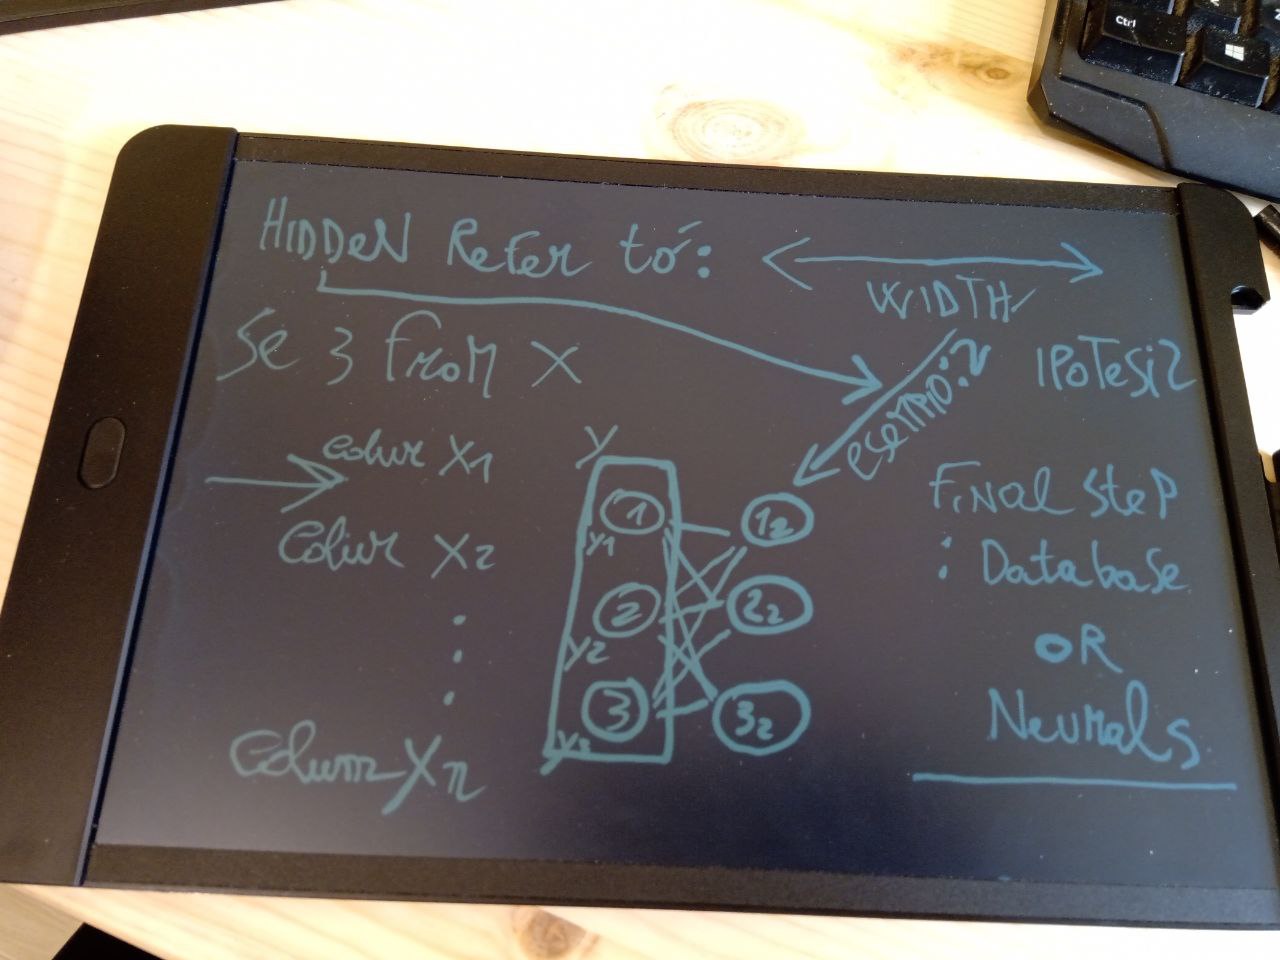 Ctrl
HIDDEN Refer to:
WIDTH
Se 3 from X
esempio: 2
IPOTESI 2
Colum X1
Colum X2
.
.
.
Column Xn
Y
1
Y1
2
Y2
3
Y3
12
22
32
Final step
: Database
OR
Neurals